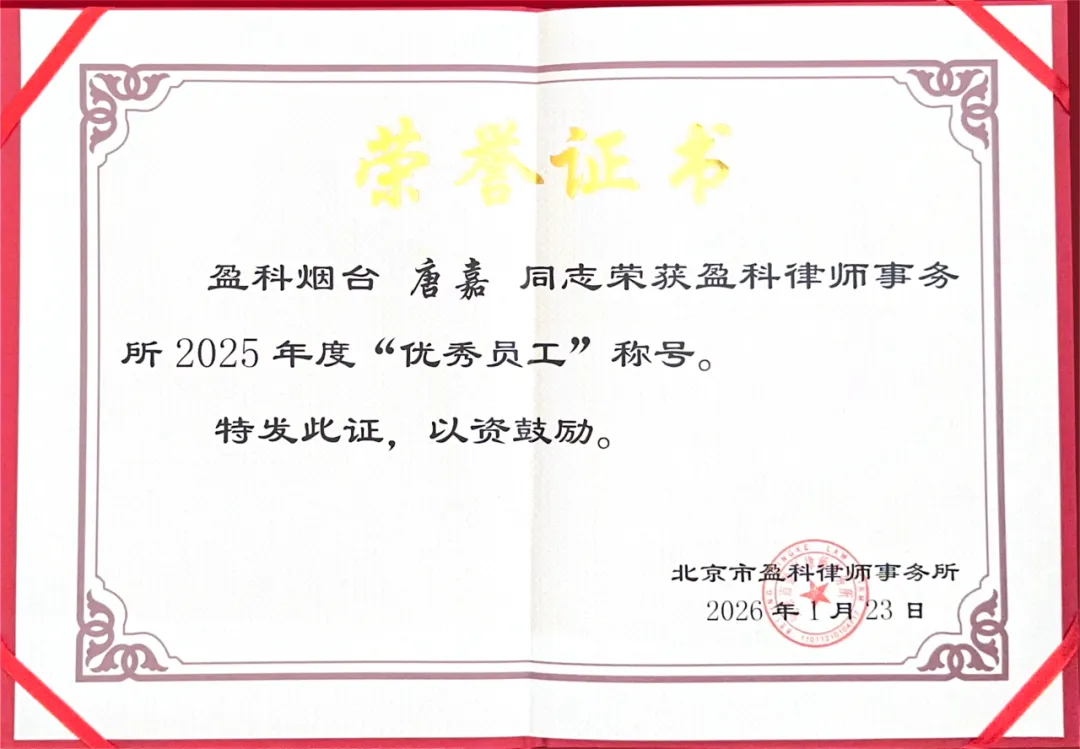 荣誉证书
盈科烟台 唐嘉 同志荣获盈科律师事务
所 2025 年度“优秀员工”称号。
特发此证，以资鼓励。
北京市盈科律师事务所
2026 年 1 月 23 日